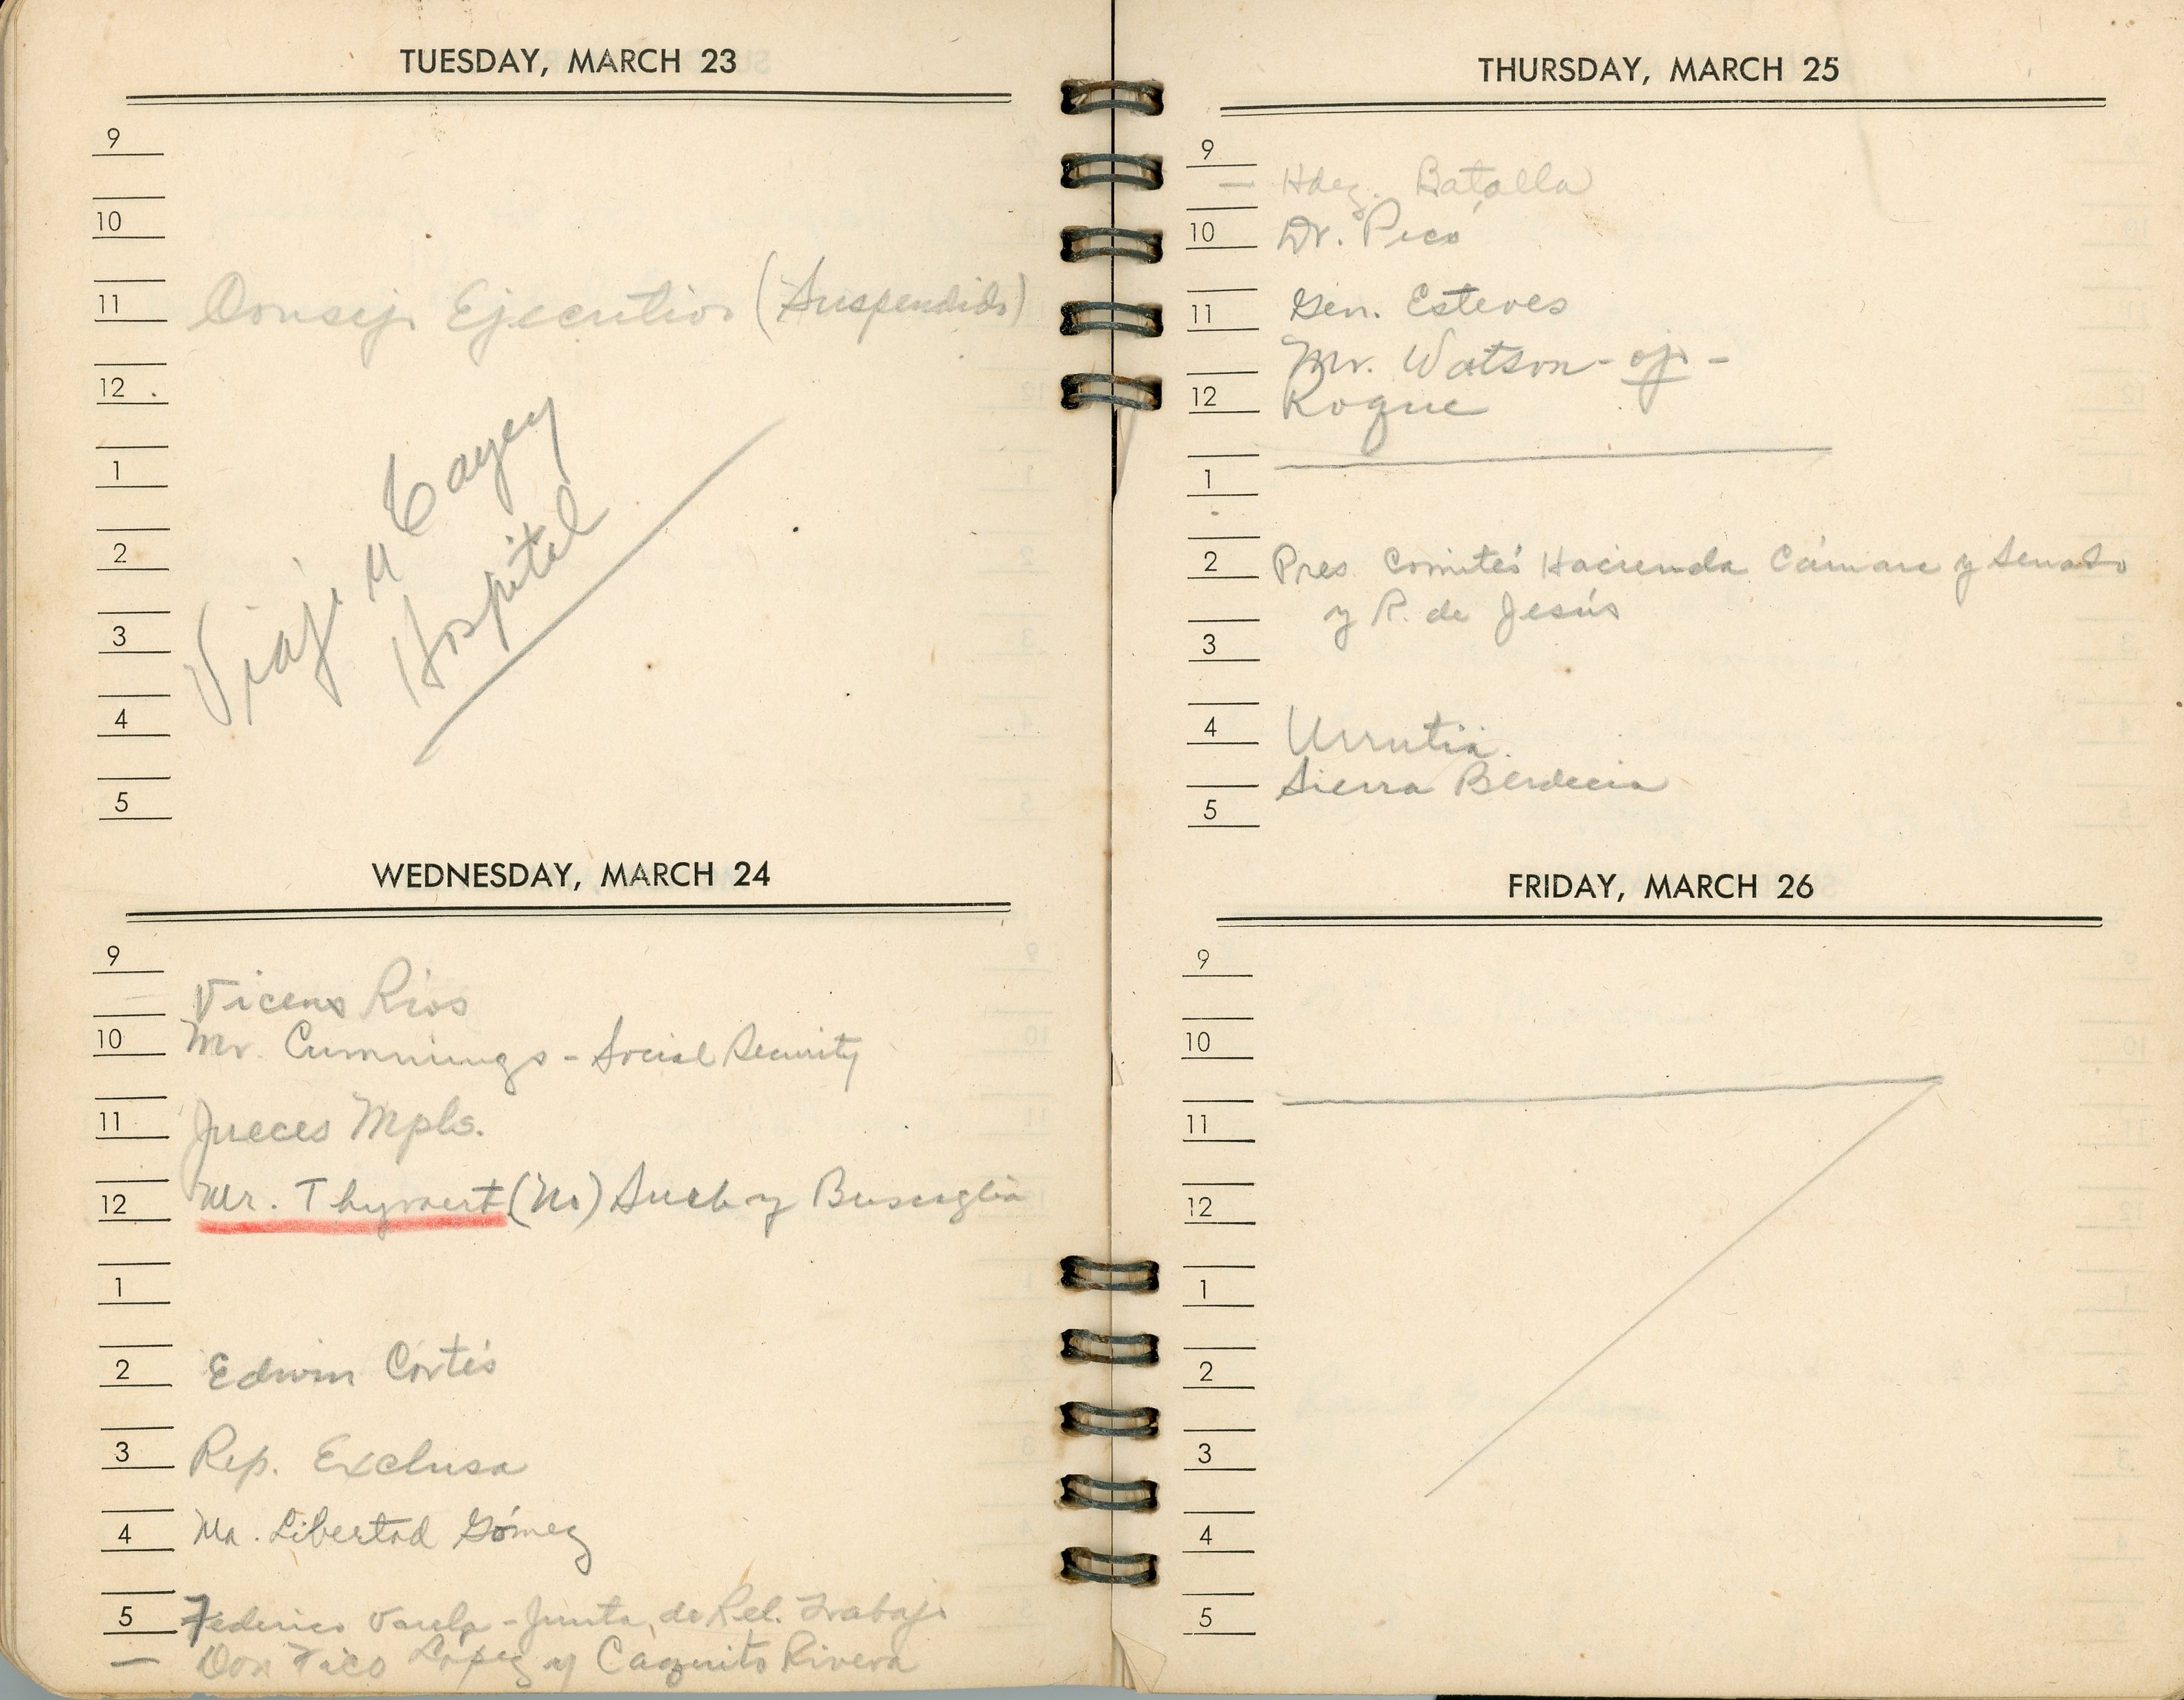 TUESDAY, MARCH 23
9
10
11 Consejo Ejecutivo (Suspendido)
12
1
Viaje a Cayey
Hospital
2
3
4
5
WEDNESDAY, MARCH 24
9
Vicens Ríos
10 Mr. Cummings - Social Security
11 Jueces Mpls.
12 Mr. (No) Sucb y Buscaglia
1
2 Edwin Cortés
3 Rep. Exclusa
4 Ma. Libertad Gómez
5 Federico Varela - Junta de Rel. Trabajo
— Don Fico López y Caquito Rivera
THURSDAY, MARCH 25
9
— Hdez. Batalla
10 Dr. Picó
11 Gen. Esteves
Mr. Watson - ojo -
12 Roque
1
2 Pres. Comités Hacienda Cámara y Senado
y R. de Jesús
3
4 Urrutia
Sierra Berdecía
5
FRIDAY, MARCH 26
9
10
11
12
1
2
3
4
5